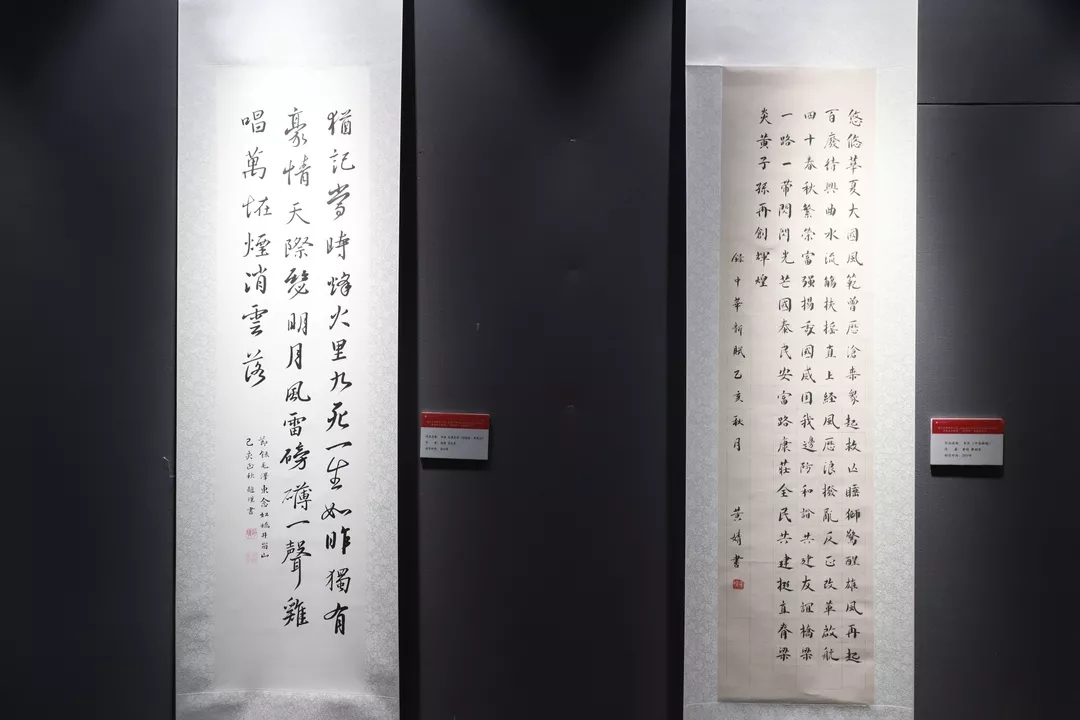 猶記當時烽火里九死一生如昨獨有
豪情天際懸明月風雷磅礴一聲雞
唱萬怪煙消雲落
節錄毛澤東念奴嬌井岡山
己亥 秋 書
悠悠華夏大國風範曾歷滄桑衆起救亡睡獅驚醒雄風再起
百廢待興曲水流觴扶搖直上經風歷浪撥亂反正改革啟航
四十春秋繁榮富强揚我國威固我邊防和諧共建友誼橋梁
一路一帶閃閃光芒國泰民安富路康莊全民共建挺直脊梁
炎黃子孫再創輝煌
錄中華 賦乙亥秋月 黃婧書